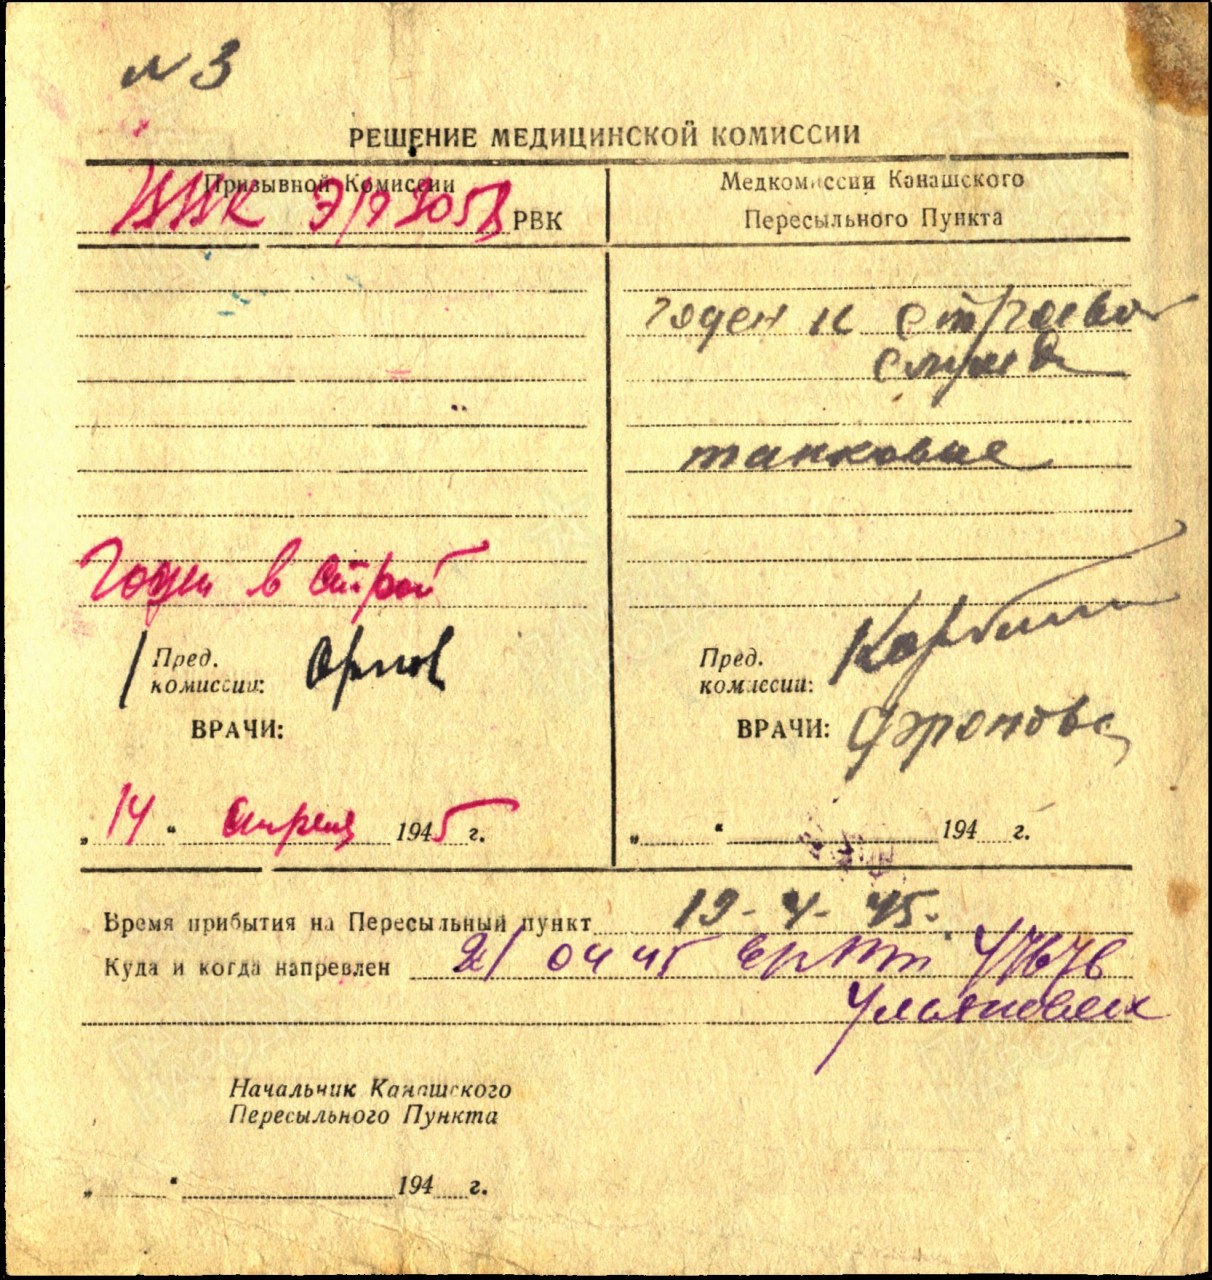 № 3
РЕШЕНИЕ МЕДИЦИНСКОЙ КОМИССИИ
Призывной Комиссии
РВК
Медкомиссии Канашского
Пересыльного Пункта
годен к строевой
службе
танковые
Годен в строй
Пред.
комиссии: Орлов
ВРАЧИ:
„14“ апреля 1945 г.
Пред.
комиссии:
ВРАЧИ: Фронтова
„ “ 194 г.
Время прибытия на Пересыльный пункт 19-4-45.
Куда и когда напревлен 21 04 45
Ульяновск
Начальник Канашского
Пересыльного Пункта
„ “ 194 г.